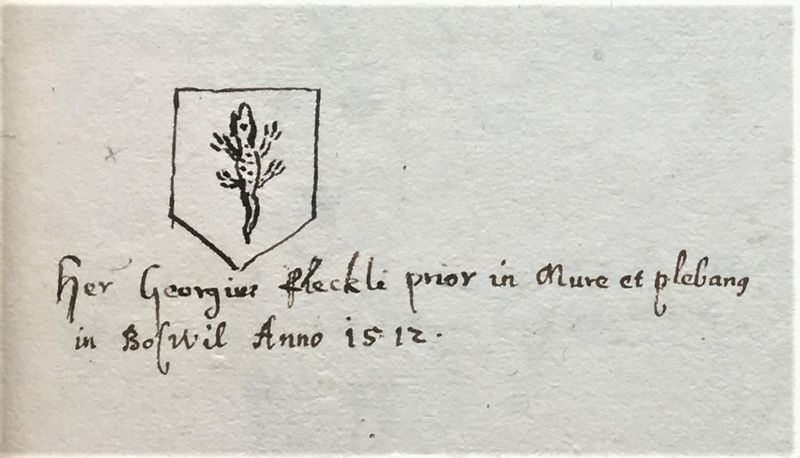 Her Georgius fleckli prior in Mure et plebanꝯ
in Boſwil Anno 1512.